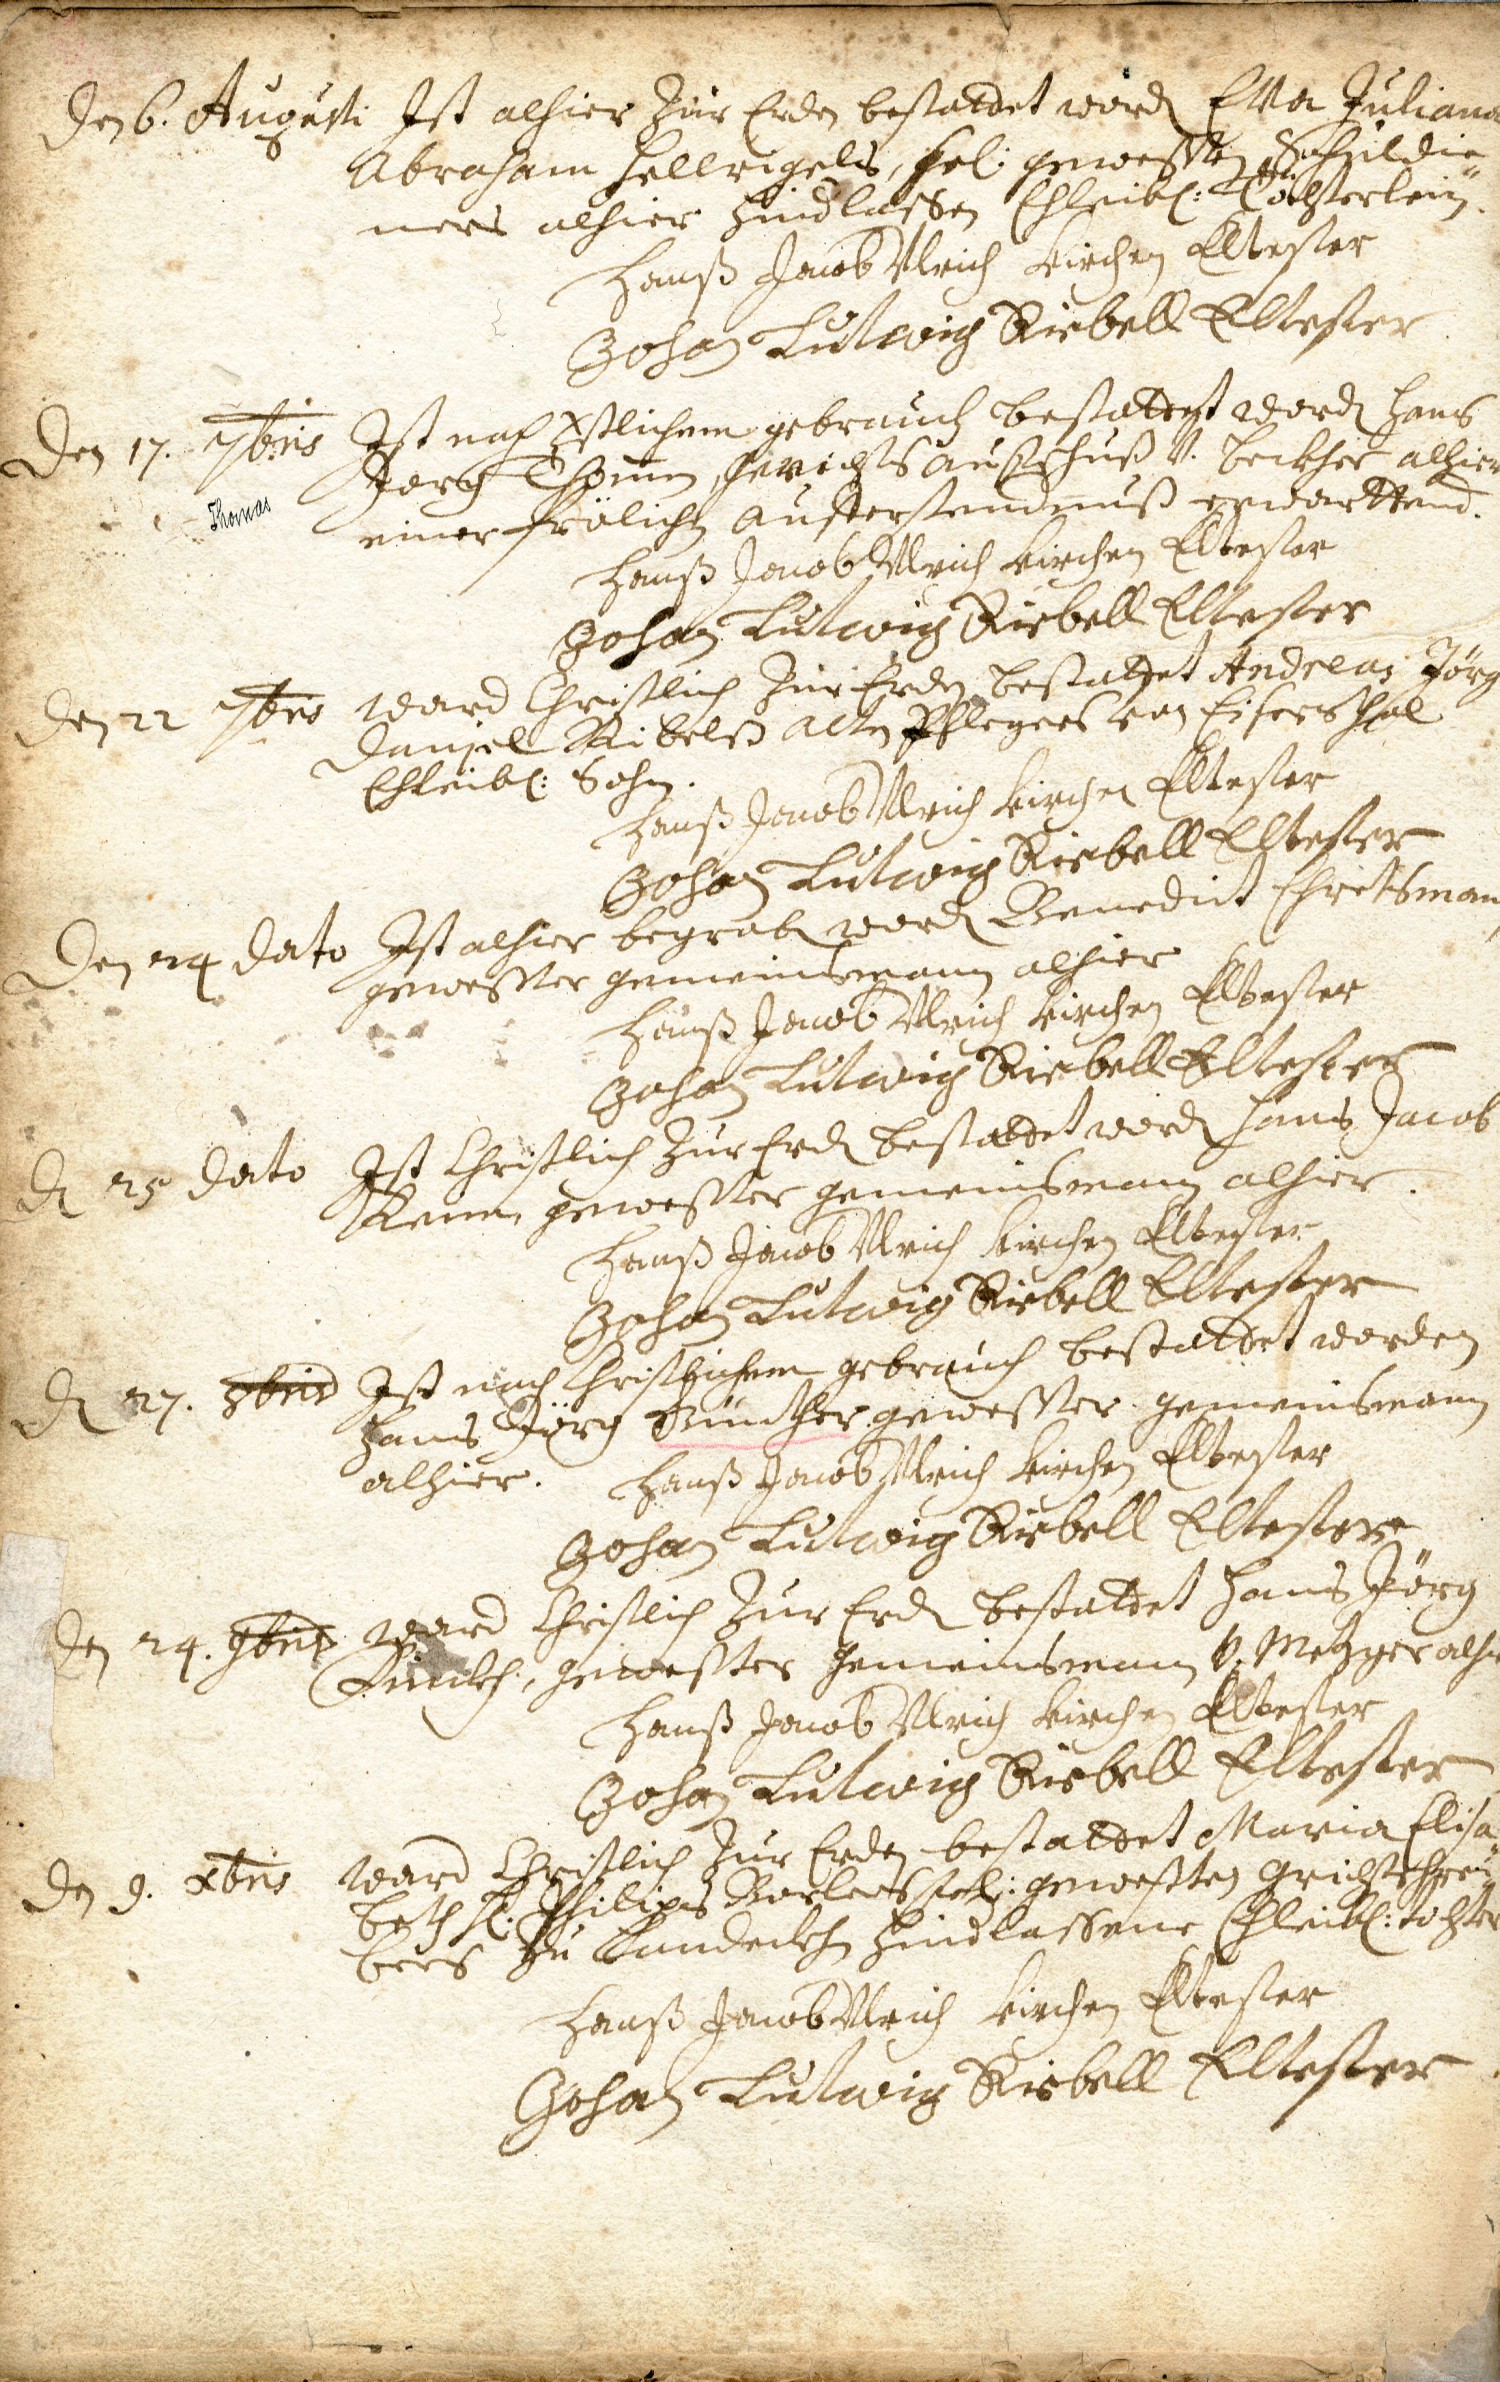 Den 6. Augusti Ist alhier Zur Erden bestattet word Eva Juliana
Abraham Hellrigels, sel: gewesten Schuldie=
ners alhier hindlassen Ehleibl: Töchterlein.
Hanß Jacob Ulrich kirchen Eltester
Johan Lutwig Riebell Eltester
Den 17. 7bris Ist nach Xstlichem gebrauch bestattet word Hans
Jerg Thom, Gerichts Außschuß v. beckher alhier
Thomas
einer frölich Aufferstendnuß erwarttend.
Hanß Jacob Ulrich kirchen Eltester
Johan Lutwig Riebell Eltester
Den 22 7bris ward Christlich Zur Erden bestattet Andreas Jörg
Daniel Ribelß alten Pflegers von Eiserthal
Ehleibl: Sohn.
Hanß Jacob Ulrich kirchen Eltester
Johan Lutwig Riebell Eltester
Den 24 dato Ist alhier begrab word Benedict Ehretsman,
gewester gemeinsmann alhier
Hanß Jacob Ulrich kirchen Eltester
Johan Lutwig Riebell Eltester
D 25 dato Ist Christlich Zur Erd bestattet word Hans Jacob
gewester gemeinsmann alhier.
Hanß Jacob Ulrich kirchen Eltester
Johan Lutwig Riebell Eltester
D 27. 8bris Ist nach Christlichem gebrauch bestattet worden
Hans Jörg Günther gewester gemeinsmann
alhier. Hanß Jacob Ulrich kirchen Eltester
Johan Lutwig Riebell Eltester
Den 24. 9bris ward Christlich Zur Erd bestattet Hans Jörg
gewester gemeinsmann v. Metzger alhier
Hanß Jacob Ulrich kirchen Eltester
Johan Lutwig Riebell Eltester
Den 9. Xbris ward Christlich Zur Erden bestattet Maria Elisa=
beth H: Philips sel: gewesten Grichtschrei=
bers Zu Landeckh hindlassene Ehleibl: tochter
Hanß Jacob Ulrich kirchen Eltester
Johan Lutwig Riebell Eltester